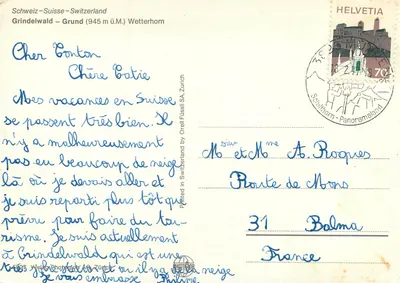 Schweiz–Suisse–Switzerland
Grindelwald – Grund (945 m ü.M.) Wetterhorn
Cher Tonton
Chère Tatie
Mes vacances en Suisse
se passent très bien. Il
n'y a malheureusement
pas eu beaucoup de neige
là où je devais aller et
je suis reparti plus tôt que
prévu pour faire du tou-
risme. Je suis actuellement
à Grindelwald qui est une
très
station et où il y a de la neige
Je vous embrasse
Printed in Switzerland by Orell Füssli SA, Zürich
HELVETIA
70
Panoramaland
Msieur et Mme A. Roques
Route de Mons
31 Balma
France